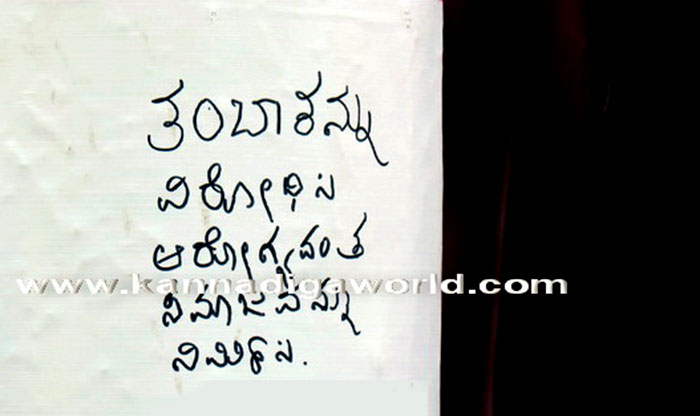 ತಂಬಾಕನ್ನು
ವಿರೋಧಿಸಿ
ಆರೋಗ್ಯವಂತ
www.kannadigaworld.com
ಸಮಾಜವನ್ನು
ನಿರ್ಮಿಸಿ.